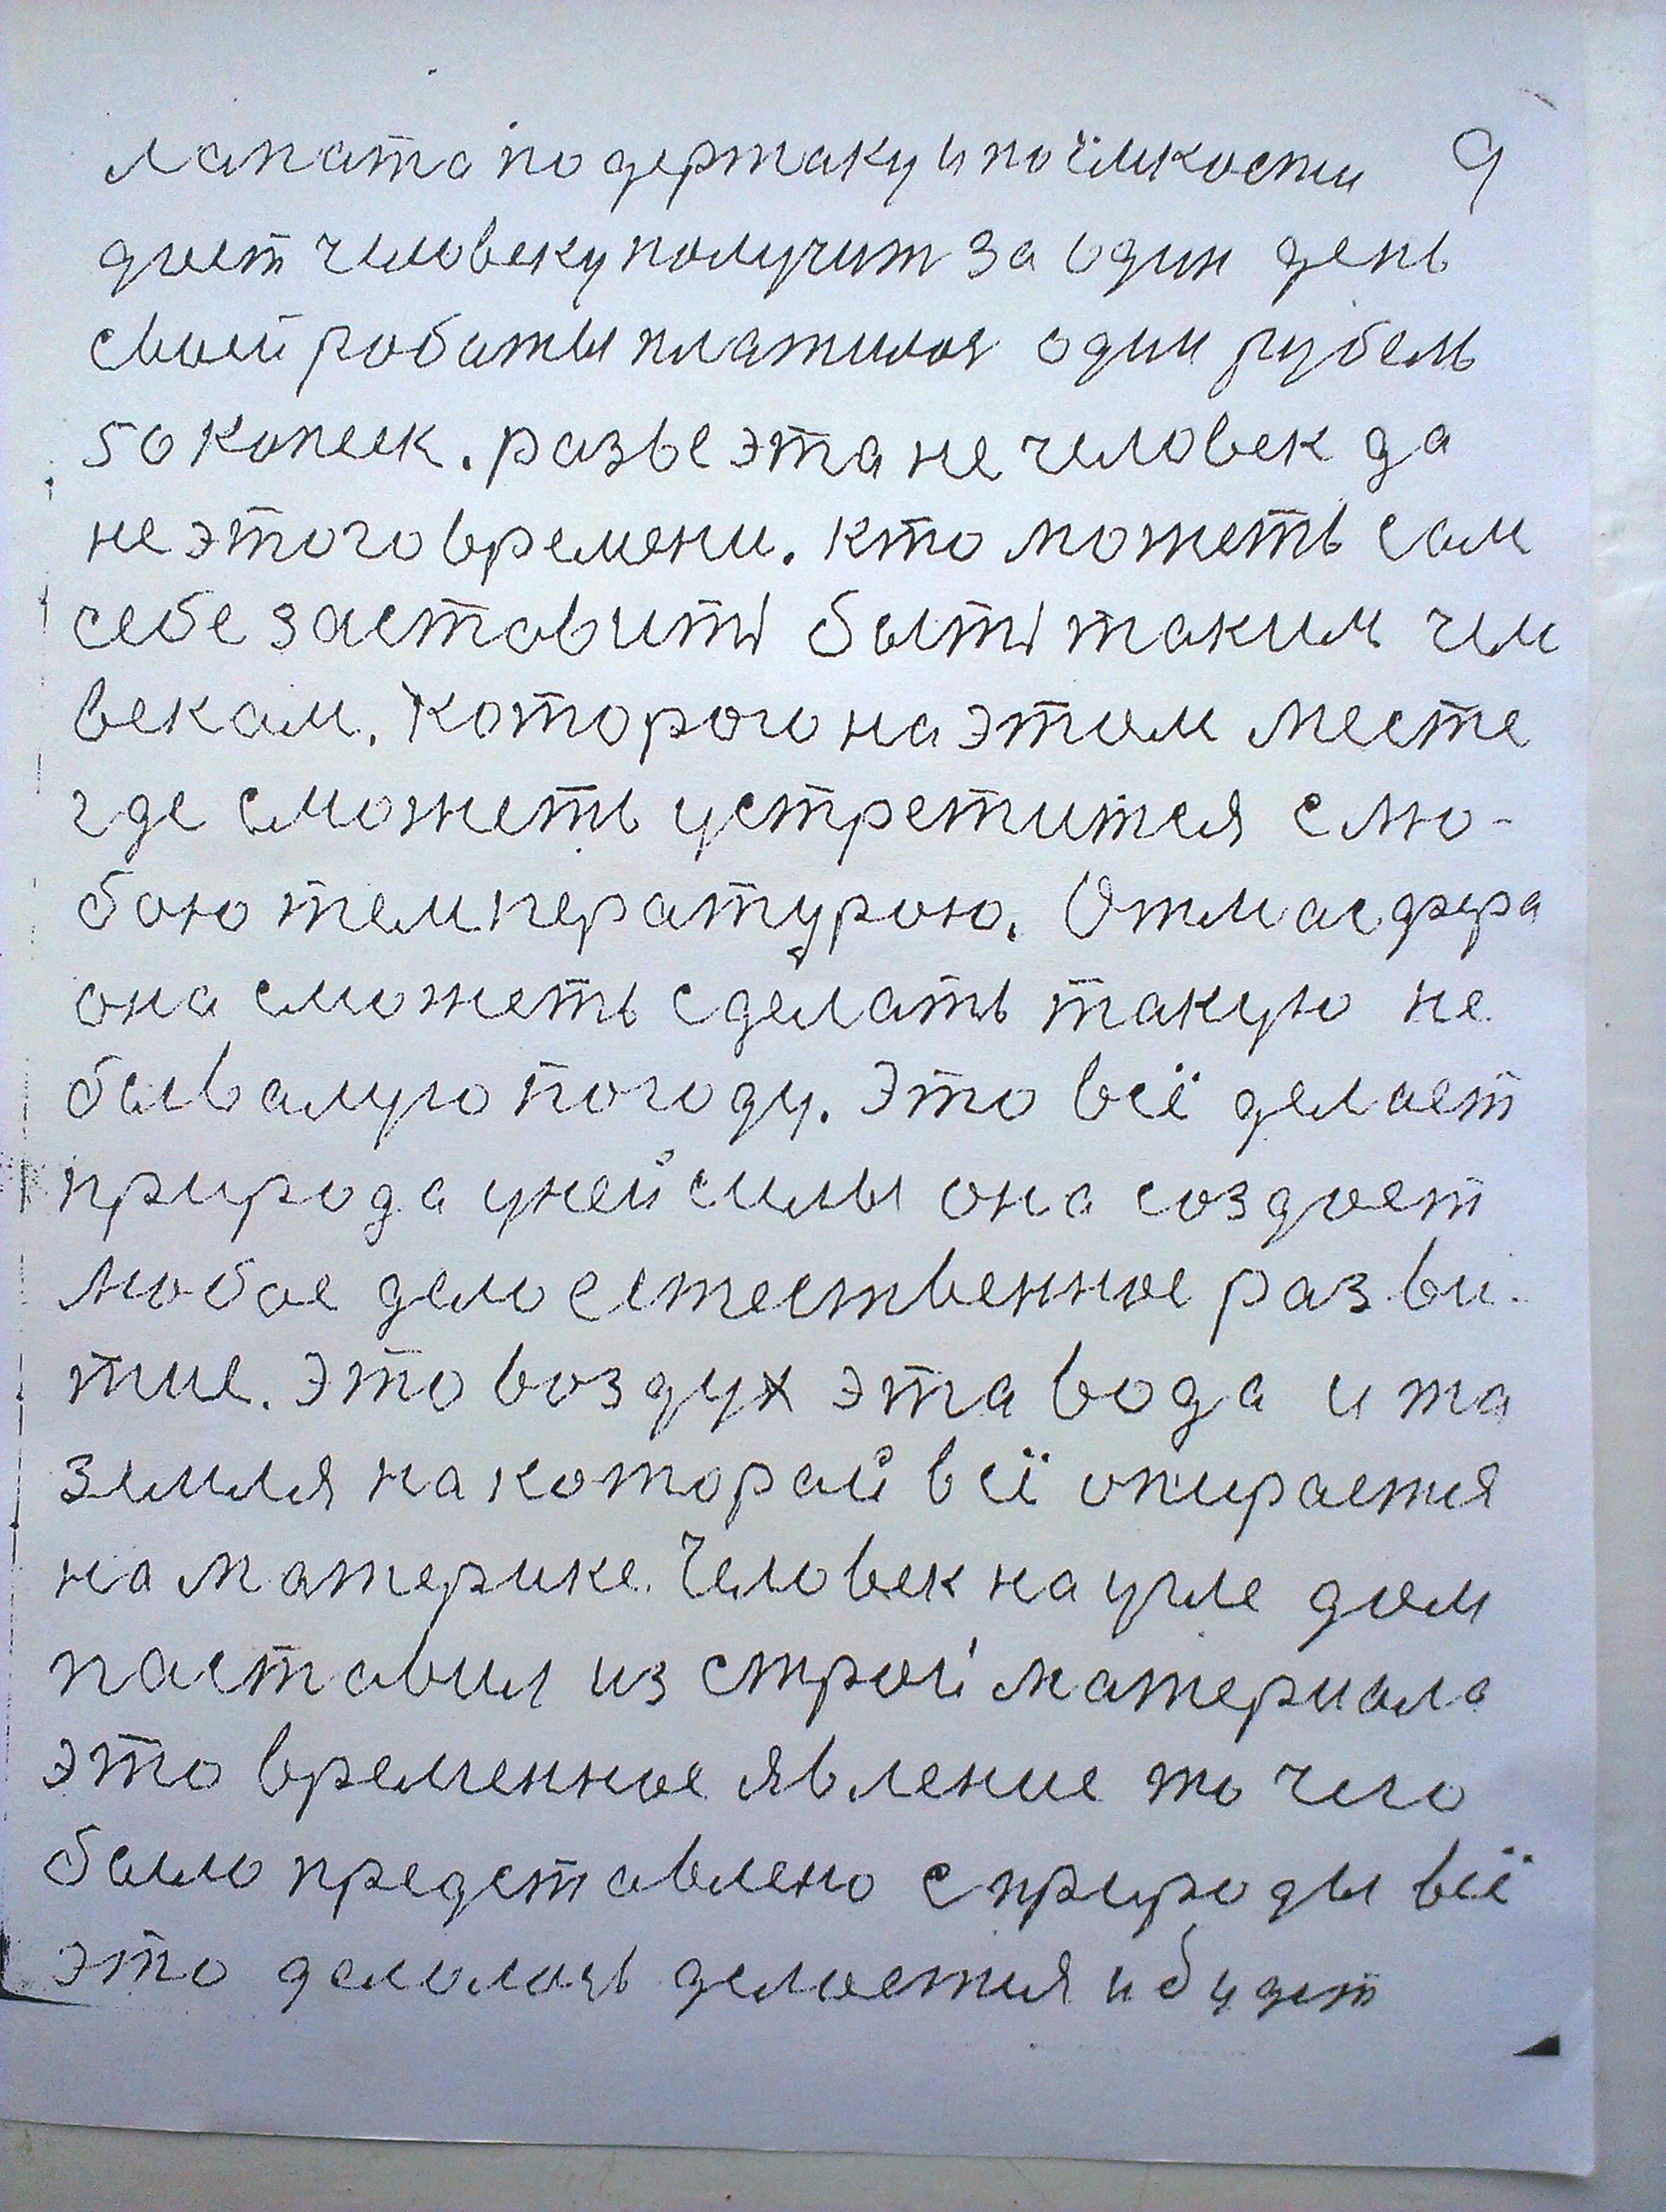 лапата по держаку и по ёмкости 9
дает человеку получит за один день
своей работы платилоя один рубель
50 копеек. разве эта не человек да
не этого времени. кто можеть сам
себе заставить быть таким чил
векам. которого на этом месте
где сможеть устретится с лю-
бою температурою. Отмасфера
она сможеть сделать такую не
бывалую погоду. Это всё делает
природа у ней силы она создает
любое дело естественное разви-
тие. это воздух эта вода и та
земля на которай всё опирается
на материке. Человек на угле дом
паставил из строй материала
это временное явление то чего
было представлено с природы всё
это делалось делается и будет